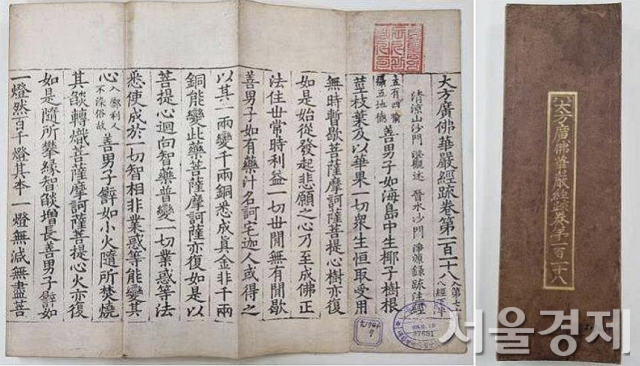 大方廣佛華嚴經䟽卷第一百一十八
清涼山沙門 澄觀述 晉水沙門 淨源錄䟽注經
善男子如海島中生椰子樹根
莖枝葉及以華果一切衆生恒取受用
無時暫歇菩薩摩訶薩菩提心樹亦復
如是始從發起悲願之心乃至成佛正
法住世常時利益一切世閒無有閒歇
善男子如有藥汁名訶宅迦人或得之
以其一兩變千兩銅悉成真金非千兩
銅能變此藥菩薩摩訶薩亦復如是以
菩提心迴向智藥普變一切業惑等法
悉使成於一切智相非業惑等能變其
心 不染俗故 善男子譬如小火隨所焚燒
其燄轉熾菩薩摩訶薩菩提心火亦復
如是隨所攀緣智燄增長善男子譬如
一燈然百千燈其本一燈無減無盡菩
大方廣佛華嚴經䟽卷第一百一十八
서울경제